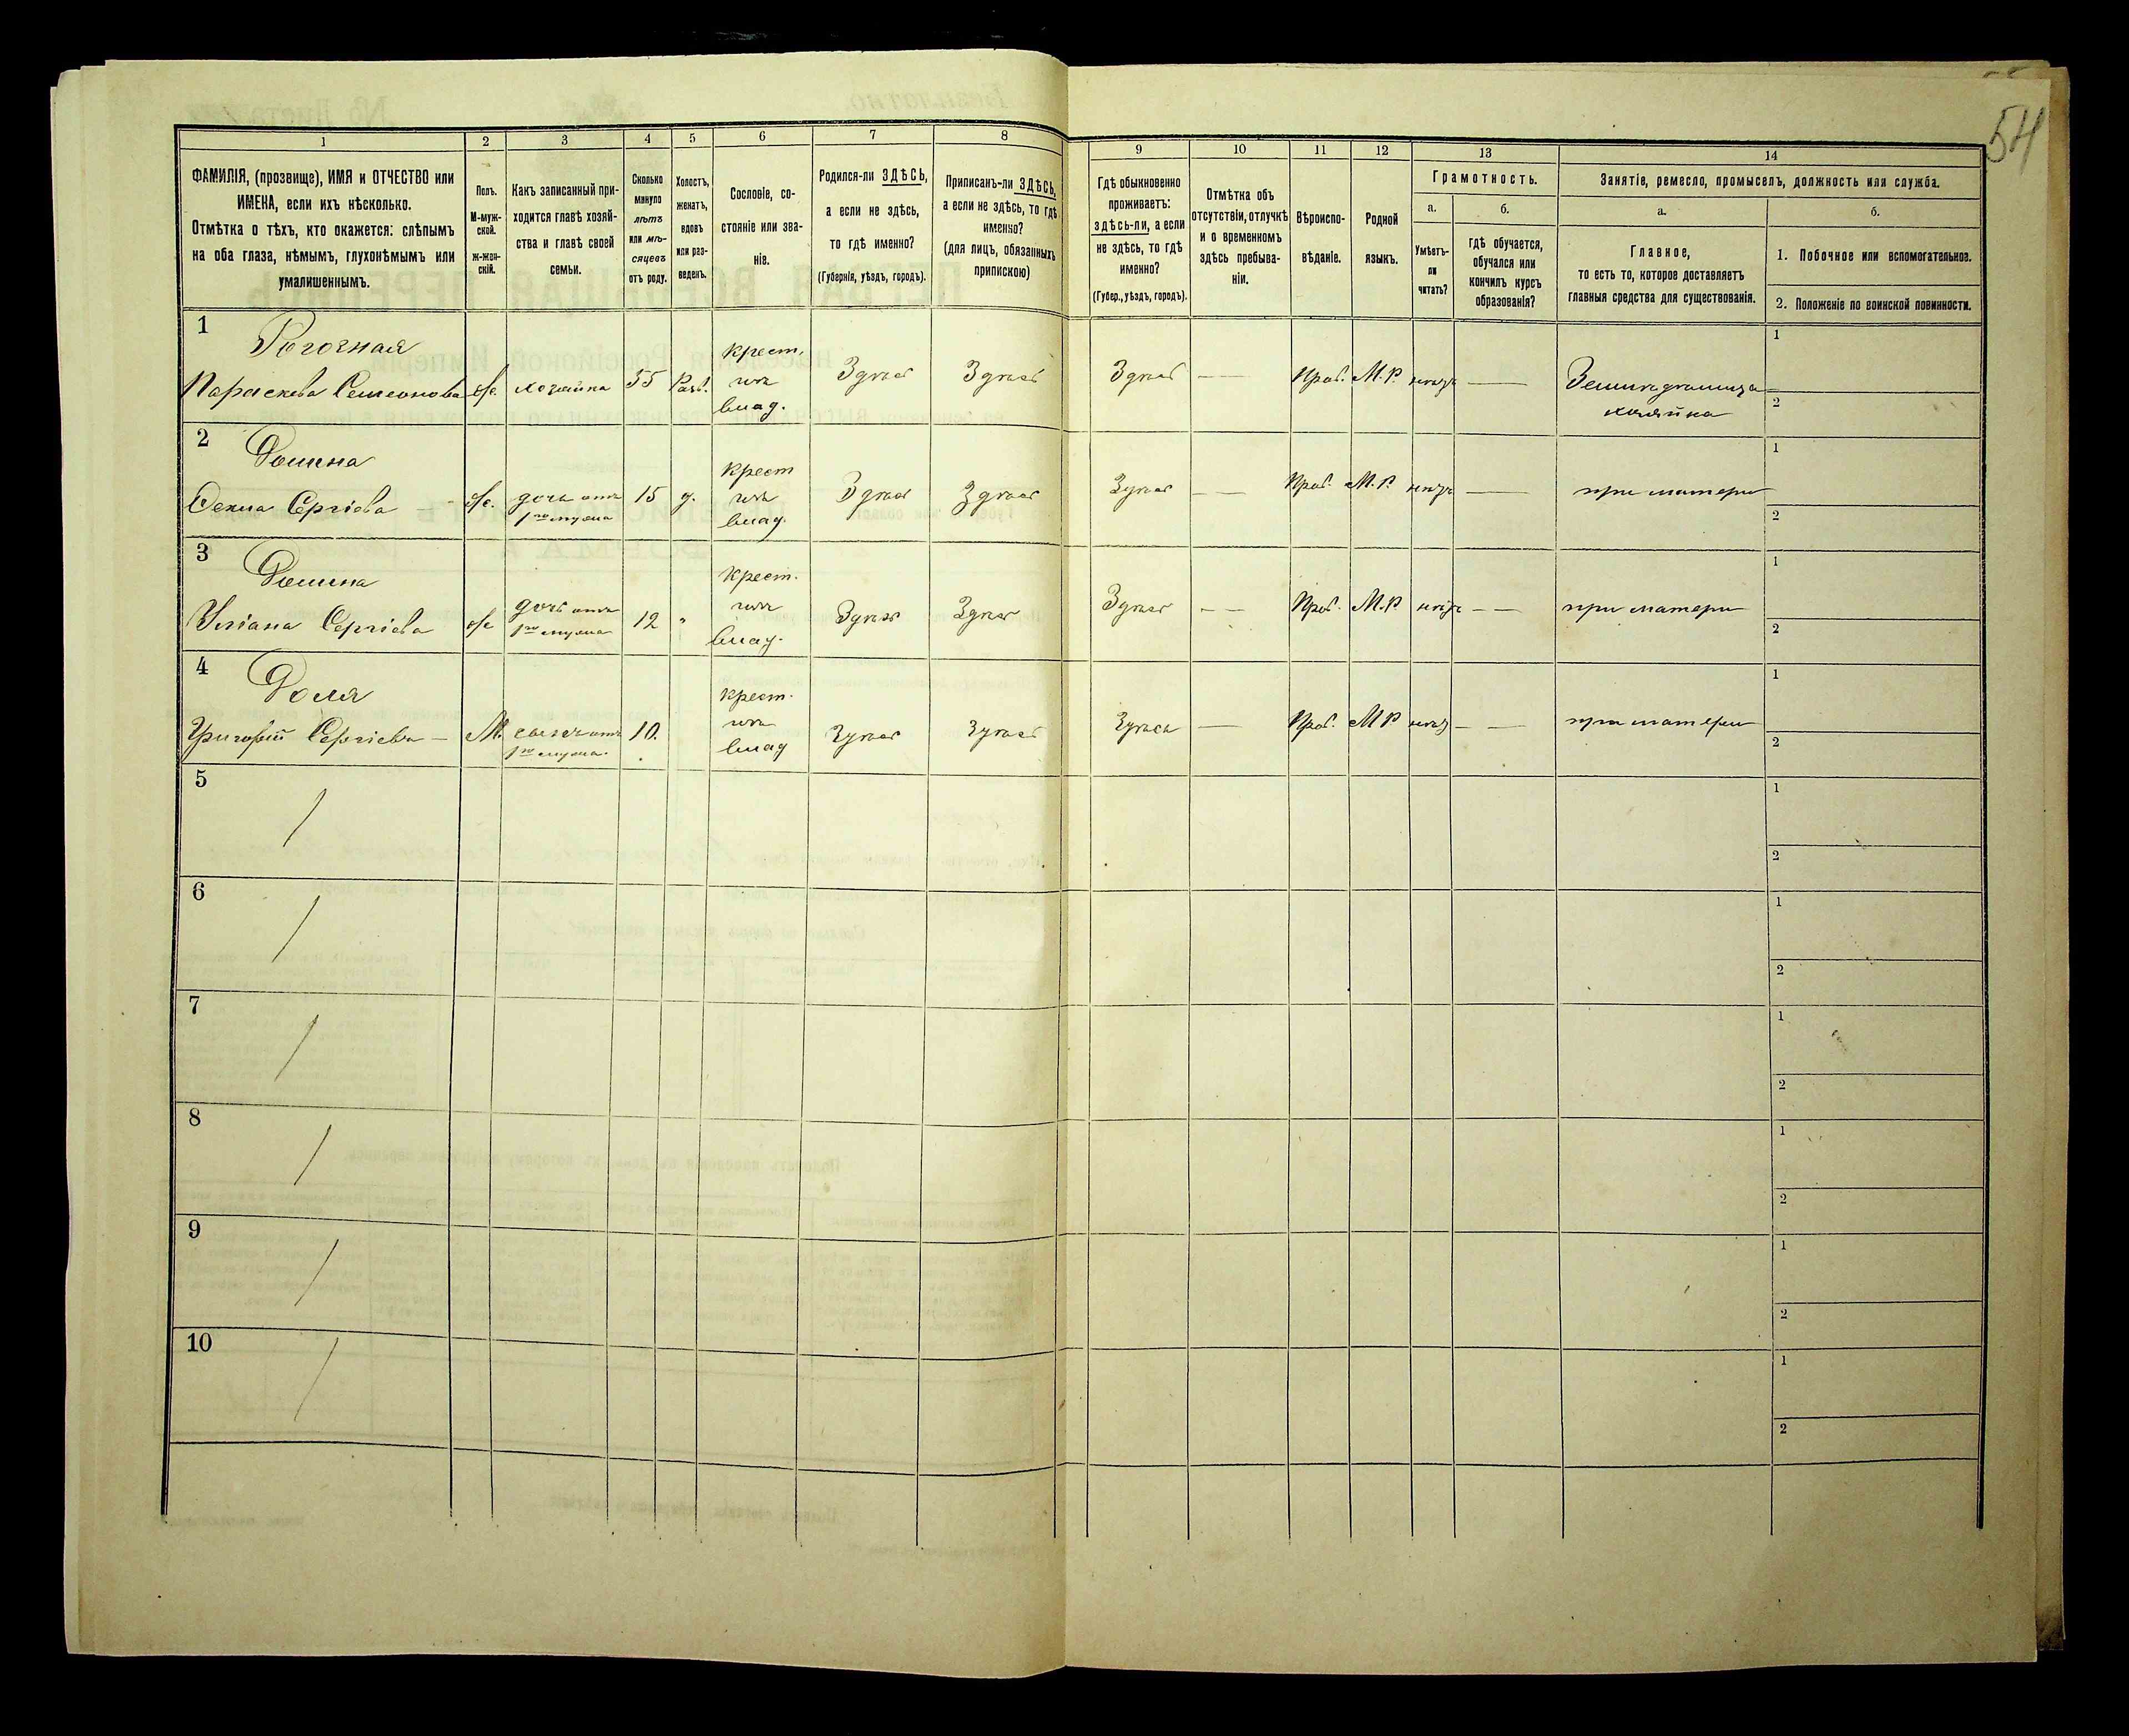 54
1
2
3
4
5
6
7
8
9
10
11
12
13
14
ФАМИЛІЯ, (прозвище), ИМЯ и ОТЧЕСТВО или
ИМЕНА, если ихъ нѣсколько.
Отмѣтка о тѣхъ, кто окажется: слѣпымъ
на оба глаза, нѣмымъ, глухонѣмымъ или
умалишеннымъ.
Полъ.
М-муж-
ской.
ж-жен-
скій.
Какъ записанный при-
ходится главѣ хозяй-
ства и главѣ своей
семьи.
Сколько
минуло
лѣтъ
или мѣ-
сяцевъ
отъ роду.
Холостъ,
женатъ,
вдовъ
или раз-
веденъ.
Сословіе, со-
стояніе или зва-
ніе.
Родился-ли ЗДѢСЬ,
а если не здѣсь,
то гдѣ именно?
(Губернія, уѣздъ, городъ).
Приписанъ-ли ЗДѢСЬ,
а если не здѣсь, то гдѣ
именно?
(для лицъ, обязанныхъ
припискою)
Гдѣ обыкновенно
проживаетъ:
здѣсь-ли, а если
не здѣсь, то гдѣ
именно?
(Губер., уѣздъ, городъ).
Отмѣтка объ
отсутствіи, отлучкѣ
и о временномъ
здѣсь пребыва-
ніи.
Вѣроиспо-
вѣданіе.
Родной
языкъ.
Грамотность.
а.
Умѣетъ-
ли
читать?
б.
Гдѣ обучается,
обучался или
кончилъ курсъ
образованія?
Занятіе, ремесло, промыселъ, должность или служба.
а.
Главное,
то есть то, которое доставляетъ
главныя средства для существованія.
б.
1. Побочное или вспомогательное.
2. Положеніе по воинской повинности.
1
Параскева Семеонова ж. хозяйка 55
крест.
влад.
Здѣсь Здѣсь Здѣсь — Прав. М.Р. нѣтъ —
хозяйка
1
2
2
Сергіева ж. дочь отъ 15 д.
1го мужа
крест
влад.
Здѣсь Здѣсь Здѣсь — Прав. М.Р. нѣтъ — при матери
1
2
3
Уліана Сергіева ж дочь отъ 12 "
1го мужа
крест.
влад.
Здѣсь Здѣсь Здѣсь — — Прав. М.Р нѣтъ — — при матери
1
2
4
Доля
Григорій Сергіевъ — М. сынъ отъ 10.
1го мужа.
крест.
влад
Здѣсь Здѣсь Здѣсь — Прав. М Р нѣтъ — — при матери
1
2
5
1
2
6
1
2
7
1
2
8
1
2
9
1
2
10
1
2